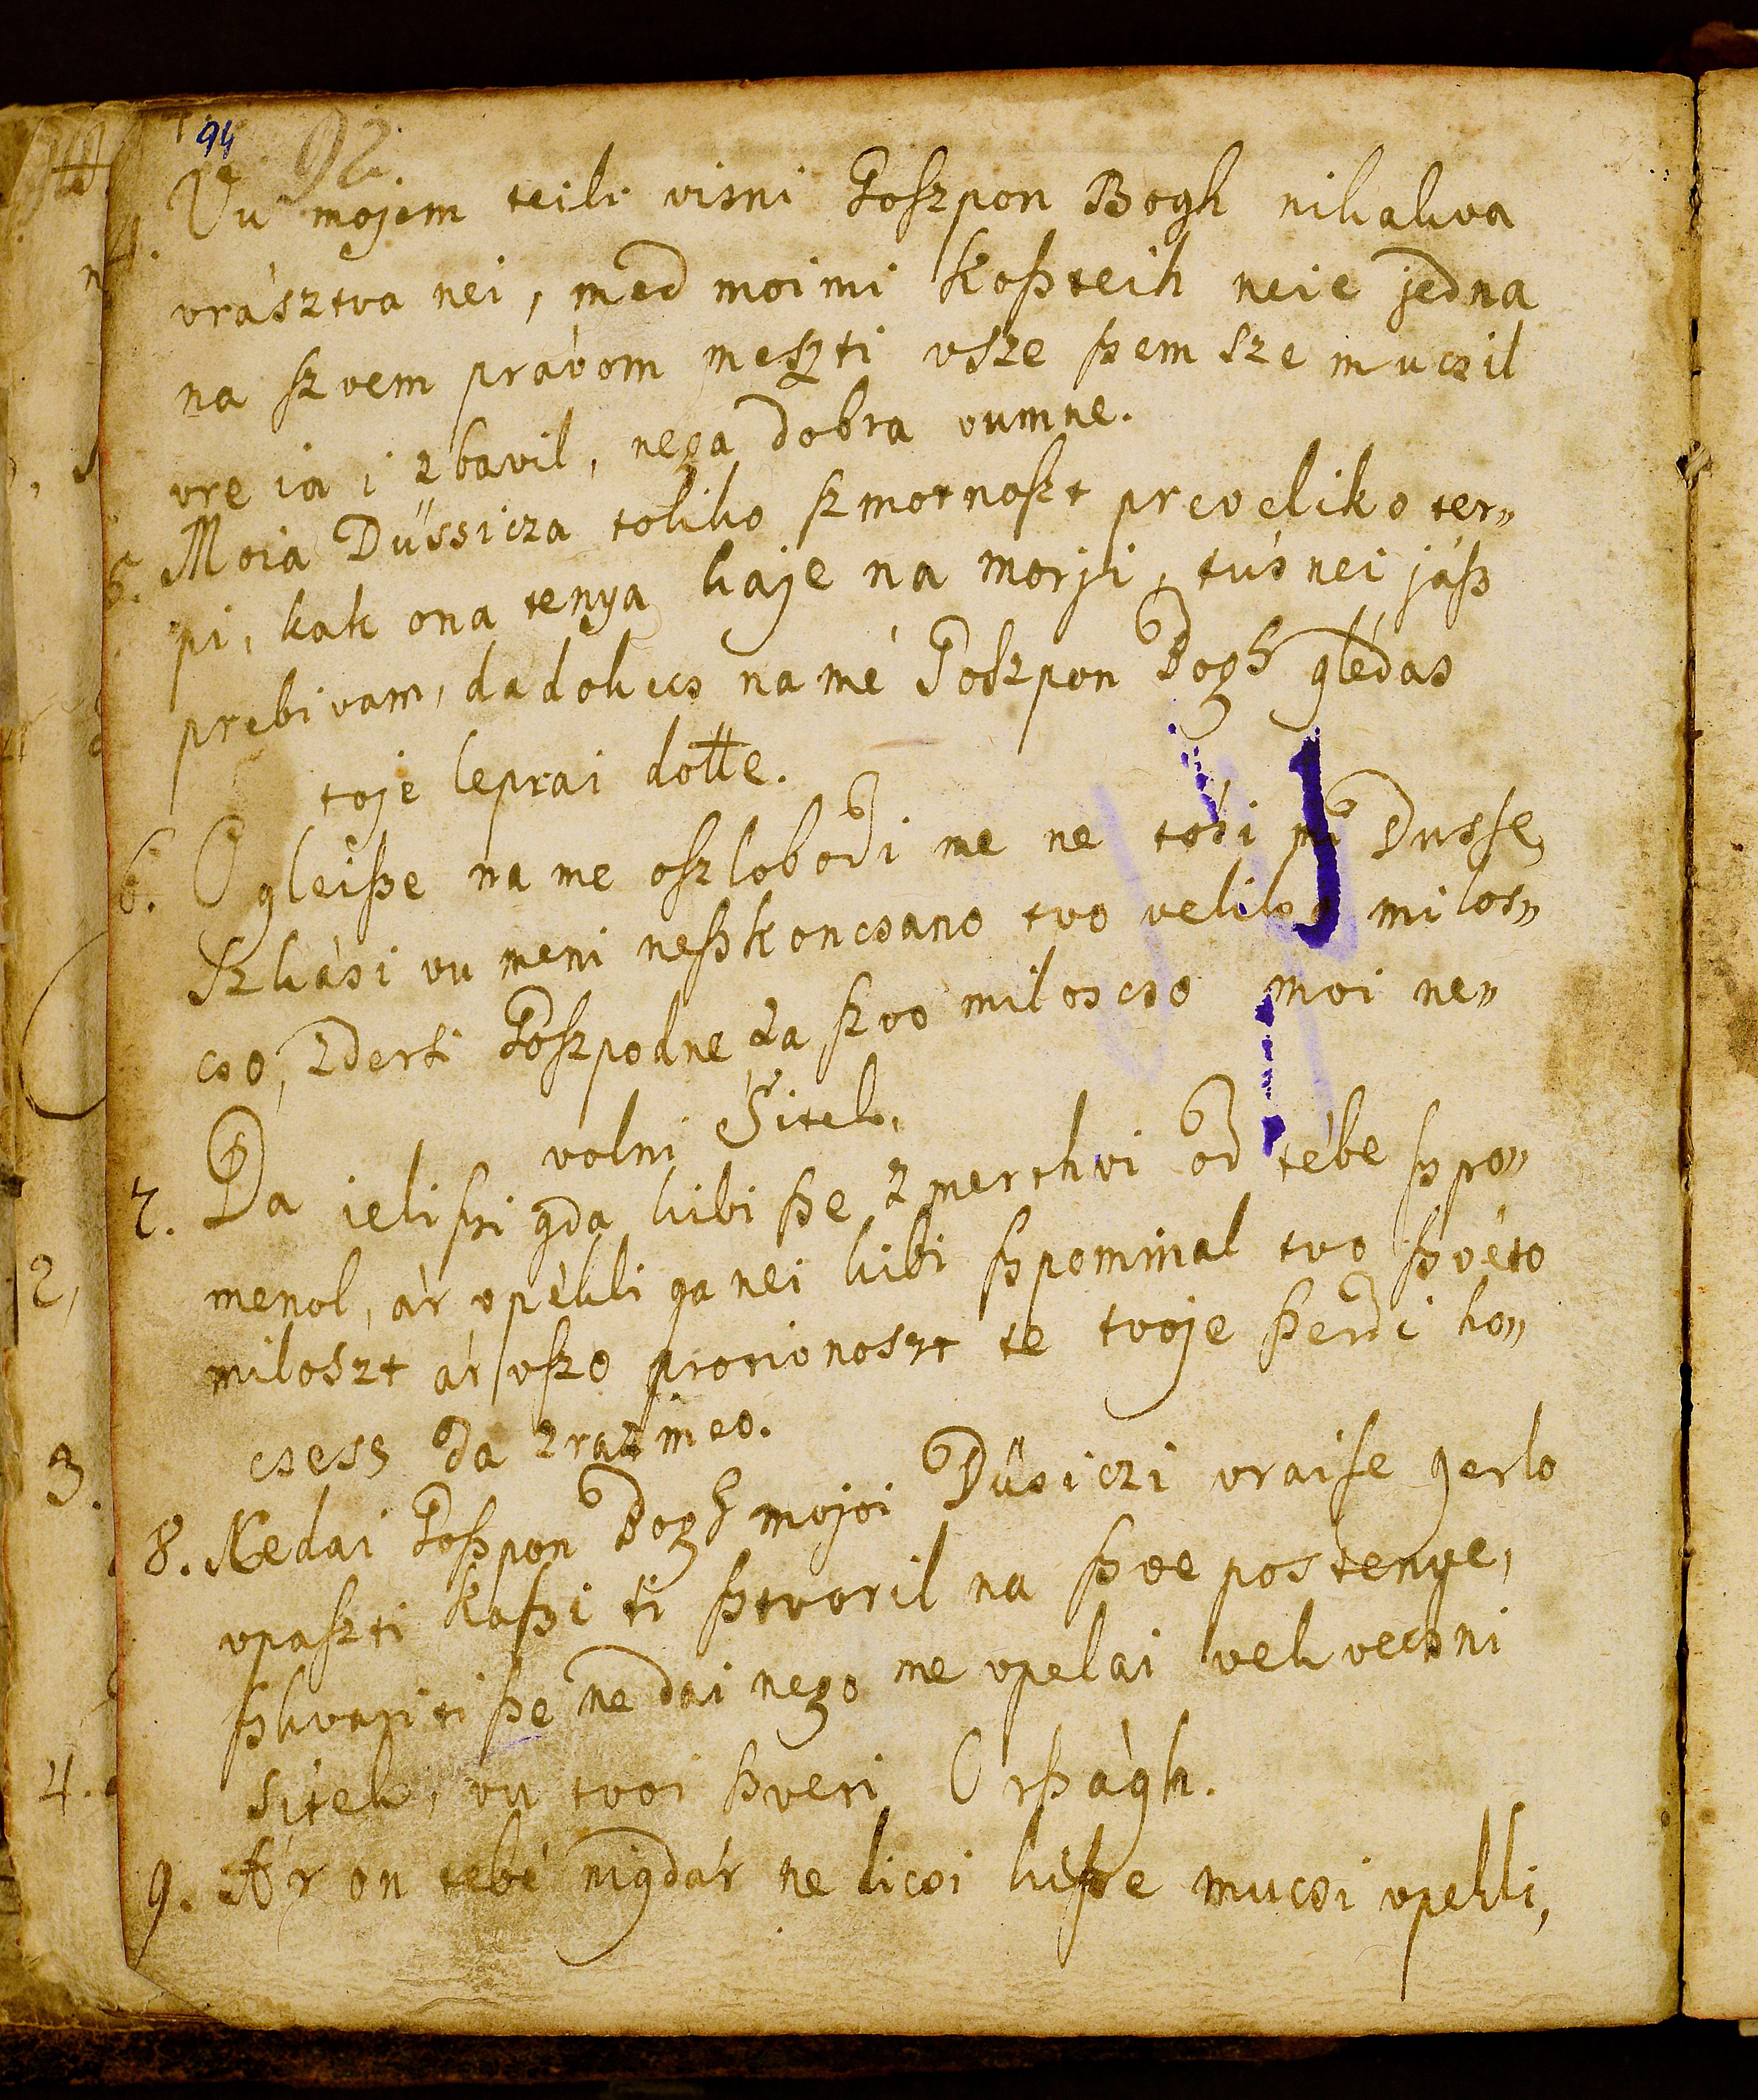 94
92.
4. Vu mojem teili visni Goszpon Bogh nikakva
vrásztva nei, med moimi koßteih neie jedna
na szvem právom meszti vsze ßem sze mucsil
vre ia i zbavil, nega dobra vumne.
5. Moia Dűssicza toliko szmotnoszt preveliko ter„
pi, kak ona tenya kaje na morji, tús nei jáß
prebivam, da dokecs na mé Goszpon Bogh glédas
toje leprai dotte.
6. O gleiße na me oszlobodi me ne tósi mi Dusse
Szkási vu meni neßkoncsano tvo veliko milos„
cso, zderti Goszpodne za szvo miloscso moi ne„
volni Sitek.
7. Da jeli ßi gda kibi ße z merthvi od tébe ßpo„
menol, ár vpékli ga nei kibi ßpominal tvo ßvéto
miloszt ár vszo protivnoszt te tvoje ßerdi ho„
csess da zrazmeo.
8. Nedai Goßpon Bogh mojoi Dűsiczi vraise gerlo
vpaszti kaßi ti ßtvoril na ßve postenye,
ßkvariti ße ne dai nego me vpelai vekvecsni
sitek, vu tvoi ßveri Orßàgh.
9. Ár on tebé nigdár ne dicsi kiße mucsi vpekli,
2,
3.
4.